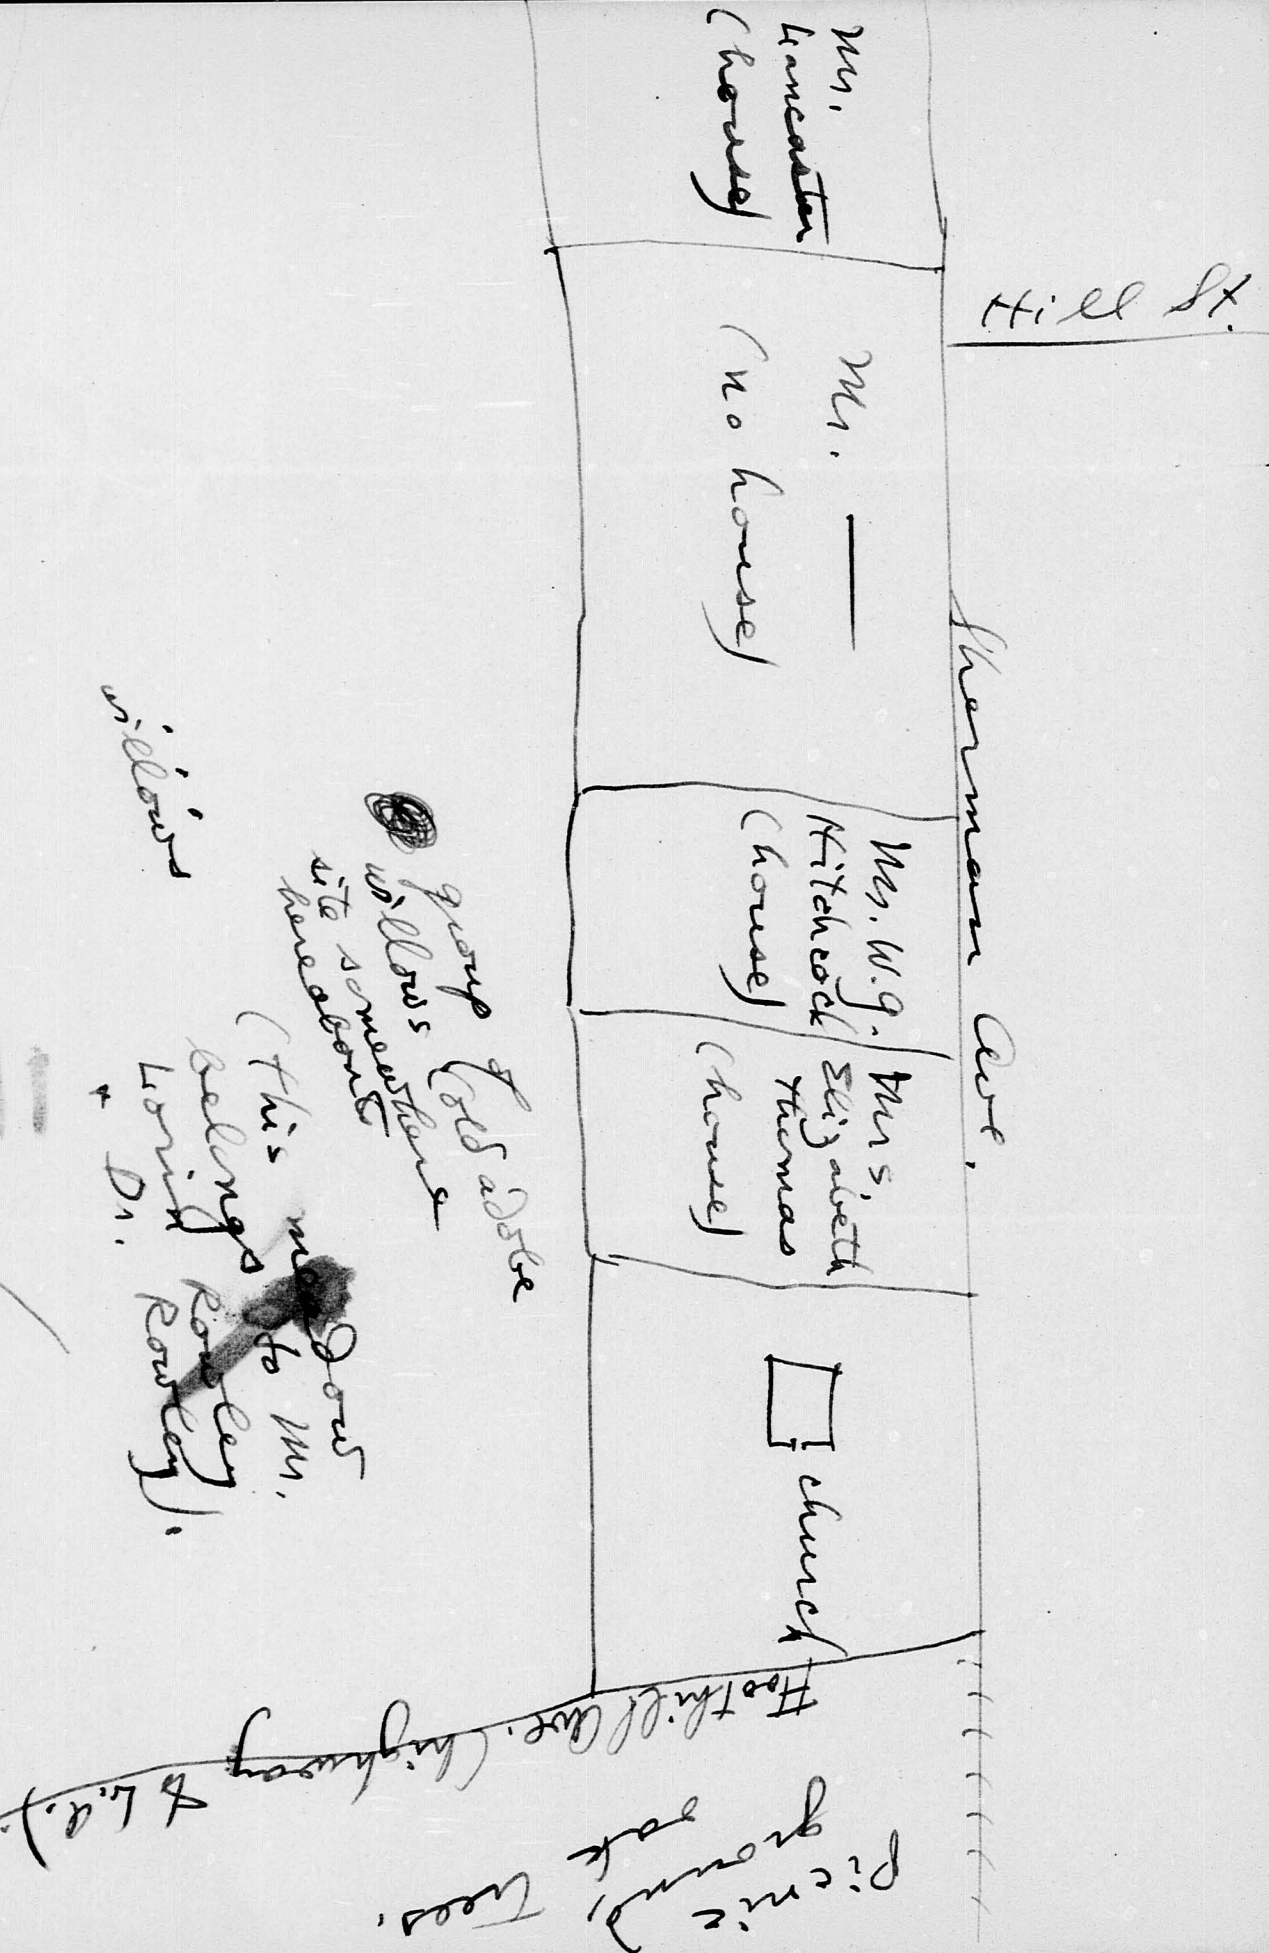 Hill St.
Sherman Ave.
Mr.
Lancaster
(house)
Mr. —
(no house)
Mr. W.G.
Hitchcock
(house)
Mrs.
Elizabeth
Thomas
(house)
church
Foothill Ave. (highway to L.A.).
Picnic
ground,
oak trees.
group of
willows
(old adobe
site somewhere
hereabout
willows
(this meadow
belongs to Mr.
Rowley
+ Dr. Rowley).